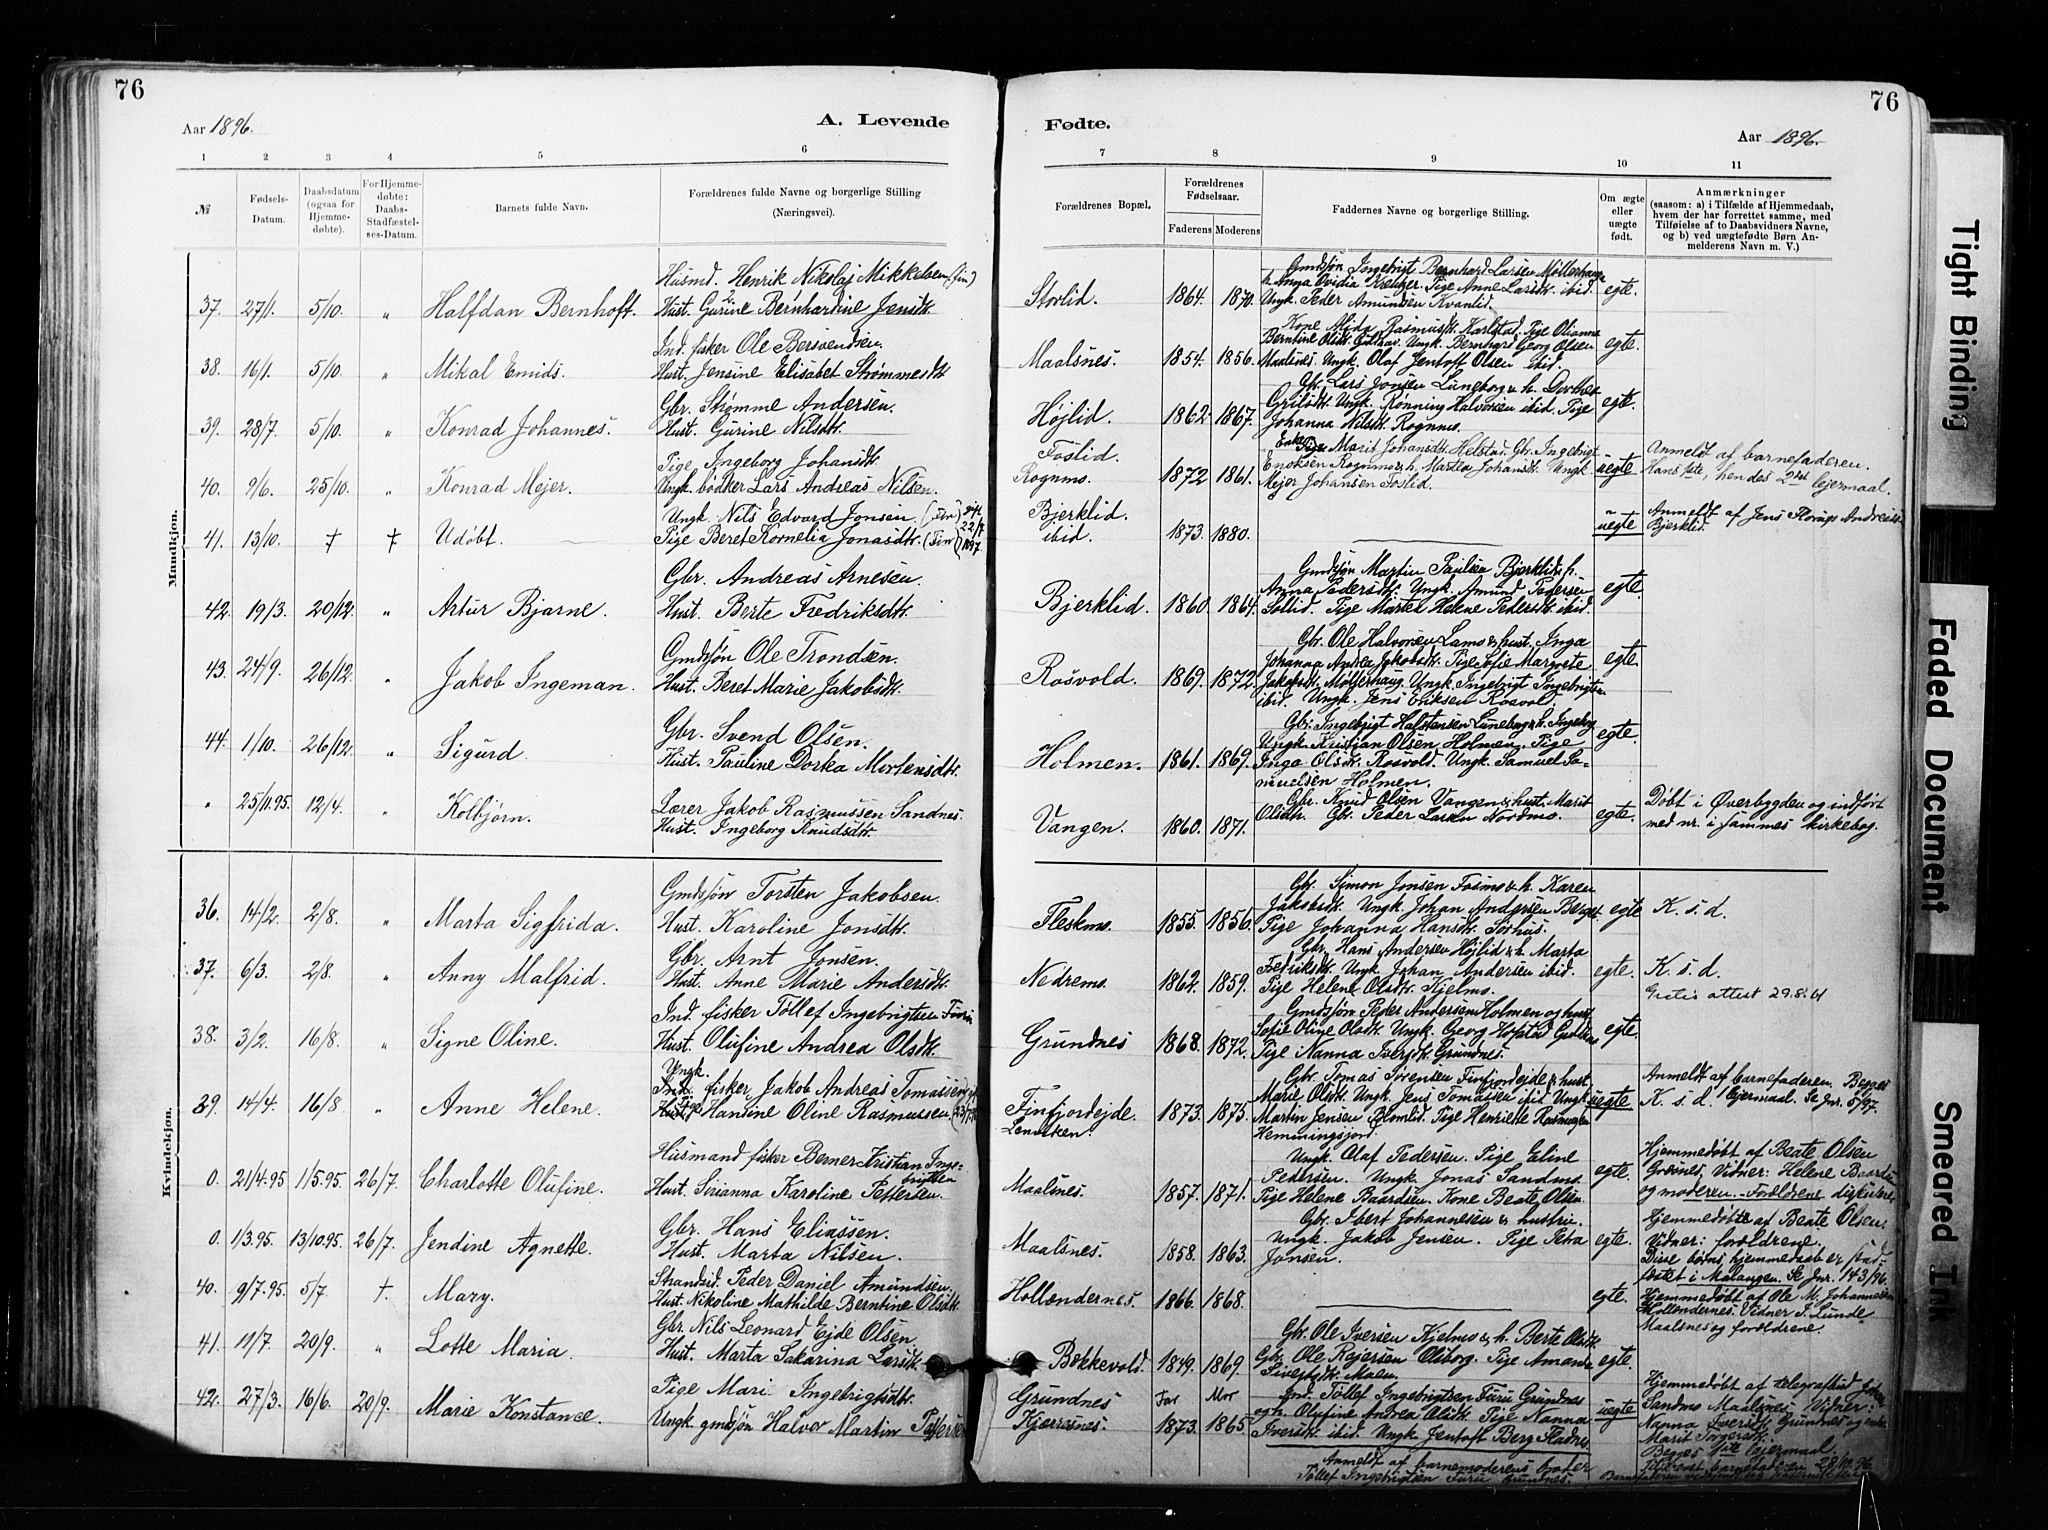 76
76
Aar 1896.
A. Levende
Fødte.
Aar 1896.
1 2 3 4 5 6 7 8 9 10 11
№
Fødsels-Datum.
Daabsdatum (ogsaa for Hjemme-døbte).
For Hjemme-døbte: Daabs-Stadfæstel-ses-Datum.
Barnets fulde Navn.
Forældrenes fulde Navne og borgerlige Stilling (Næringsvei).
Forældrenes Bopæl.
Forældrenes Fødselsaar.
Faderens Moderens
Faddernes Navne og borgerlige Stilling.
Om ægte eller uægte født.
Anmærkninger
(saasom: a) i Tilfælde af Hjemmedaab, hvem der har forrettet samme, med Tilføielse af to Daabsvidners Navne, og b) ved uægtefødte Børn An-melderens Navn m. V.)
Mandkjøn.
37. 27/1. 5/10. " Halfdan Bernhoft. Husmd. Henrik Nikolaj Mikkelsen (fin)
Hust. Gurine Bernhardine Jensdtr. Storlid. 1864. 1870. egte.
Gmdsøn Ingebrigt Bernhard Larsen Møllerhaug
Anna Ovidia Pige Anne Larsdtr. ibid.
Ungk. Peder Amundsen Kvanlid.
38. 16/1. 5/10. " Mikal Emids. Ind. fisker Ole Bersvendsen.
Hust. Jensine Elisabet Strømmesdtr. Maalsnes. 1854. 1856. egte.
Kone Rasmusdtr. Karlstad. Pige Olianna
Berntine Olsdtr. Ungk. Bernhard Georg Olsen
Maalsnes. Ungk. Olaf Jentoft Olsen ibid.
39. 28/7. 5/10. " Konrad Johannes. Gbr. Strømme Andersen.
Hust. Gurine Nilsdtr. Højlid. 1862. 1867. egte.
Gbr. Lars Jonsen Luneborg & h. Dorthea
Ungk. Rønning Halvorsen ibid. Pige
Johanna Nilsdtr. Rognmo.
40. 9/6. 25/10. " Konrad Mejer. Pige Ingeborg Johansdtr.
Ungk. bødker Lars Andreas Nilsen. Foslid.
Rognmo. 1872 1861. uegte
Enke Marit Johansdtr. Helstad. Gbr. Ingebrigt
Enoksen Rognmo & h. Martea Johansdtr. Ungk.
Mejer Johansen Foslid.
Anmeldt af barnefaderen.
Hans 1ste, hendes 2det lejermaal.
41. 13/10. † † Udøbt. Ungk. Nils Edvard Jonsen (Fin)
Pige Beret Kornelia Jonasdtr. (Fin) 22/7 1897 Bjerklid.
ibid. 1873. 1880. uegte
Anmeldt af Jens Andreas
Bjerklid.
42. 19/3. 20/12. " Artur Bjarne. Gbr. Andreas Arnesen.
Hust. Berte Fredriksdtr. Bjerklid. 1860. 1864. egte.
Gmdsøn Martin Paulsen Bjerklid & h.
Anna Pedersdtr. Ungk. Amund Pedersen
Sollid. Pige Marten Helene Pedersdtr. ibid.
43. 24/9. 26/12. " Jakob Ingeman. Gmdsøn Ole Trondsen.
Hust. Beret Marie Jakobsdtr. Rosvold. 1869. 1872. egte.
Gbr. Ole Halvorsen Lamo & hust. Inga
Johanna Andrea Jakobsdtr. Pige Sofie Margrete
Jakobsdtr. Møllerhaug. Ungk. Ingebrigt Ingebrigtsen
ibid. Ungk. Jens Eriksen Rosvol.
44. 1/10. 26/12. " Sigurd. Gbr. Svend Olsen.
Hust. Pauline Dorka Mortensdtr. Holmen. 1861. 1869. egte.
Gbr. Ingebrigt Halstensen Luneborg & h. Ingeborg
Ungk. Kristjan Olsen Holmen. Pige
Inga Olsdtr. Rosvold. Ungk. Samuel Sa-
muelsen Holmen.
" 25/11.95. 12/4. " Kolbjørn. Lærer Jakob Rasmussen Sandnes.
Hust. Ingeborg Knudsdtr. Vangen. 1860. 1871. egte.
Gbr. Knud Olsen Vangen & hust. Marit
Olsdtr. Gbr. Peder Larsen Nordmo.
Døbt i Øverbygden og indført
med nr. i sammes kirkebog.
Kvindekjøn.
36. 14/2. 2/8. " Marta Sigfrida. Gmdsøn Torsten Jakobsen.
Hust. Karoline Jonsdtr. Fleskmo. 1855. 1856. egte
Gbr. Simon Jonsen Fosmo & h. Karen
Jakobsdtr. Ungk. Johan Andersen Berget.
Pige Johanna Hansdtr.
K. s. d.
37. 6/3. 2/8. " Anny Malfrid. Gbr. Arnt Jonsen.
Hust. Anne Marie Andersdtr. Nedremo. 1862. 1859. egte.
Gbr. Hans Andersen Højlid & h. Marta
Fredriksdtr. Ungk. Johan Andersen ibid.
Pige Helene Olsdtr. Kjelmo.
K. s. d.
Gratis attest 29.8.61
38. 3/2. 16/8. " Signe Oline. Ind. fisker Tollef Ingebrigtsen Furu
Hust. Olufine Andrea Olsdtr. Grundnes 1868. 1872. egte.
Gmdsøn Peder Andersen Holmen og hust.
Sofie Oline Olsdtr. Ungk. Georg Hofstad
Pige Nanna Iversdtr. Grundnes.
39. 14/4. 16/8. " Anne Helene. Ungk. fisker Jakob Andreas Tomassen
Pige Hansine Oline Rasmussen Finfjordejde.
Lenviken. 1873. 1875. uegte
Gbr. Tomas Sørensen Finfjordejde & hust.
Marie Olsdtr. Ungk. Jens Tomassen ibid. Ungk.
Martin Jensen Pige Henriette Rasmussen
Hemmingsjord.
Anmeldt af barnefaderen. Begges
K. s. d. 1 lejermaal. Se Jnr. 5/97.
0. 21/4.95 1/5.95. 26/7. Charlotte Olufine. Husmand fisker Berner Kristian Inge-
brigtsen
Hust. Sirianna Karoline Pettersen. Maalsnes. 1857. 1871. egte.
Ungk. Olaf Pedersen. Pige Eline
Pedersen. Ungk. Jonas Sandmo.
Pige Helene Baardsen. Kone Beate Olsen
Hjemmedøbt af Beate Olsen
Grundnes. Vidner: Helene Baardsen
og moderen. Forældrene
0. 1/3.95. 13/10.95. 26/7. Jendine Agnette. Gbr. Hans Eliassen.
Hust. Marta Nilsen. Maalsnes. 1858. 1863. egte.
Gbr. Ibert Johannesen & hustru.
Ungk. Jakob Jensen. Pige Petra
Jonsen.
Hjemmedøbte af Beate Olsen.
Vidner: forældrene.
Disse børns hjemmedaab er stad-
fæstet i Malangen. Se Jnr. 143/96.
40. 9/7.95. 5/7. † Mary. Strandsid. Peder Daniel Amundsen.
Hust. Nikoline Mathilde Berntine Olsdtr. Hollendernes. 1866. 1868. egte.
Hjemmedøbt af Ole M. Johannesen
Hollendernes. Vidner J. Lunde
Maalsnes og forældrene.
41. 11/7. 20/9. " Lotte Maria. Gbr. Nils Leonard Ejde Olsen
Hust. Marta Sakarina Larsdtr. Bekkevold. 1849. 1869. egte.
Gbr. Ole Iversen Kjelmo & h. Berte Olsdtr.
Gbr. Ole Rejersen Olsborg. Pige Amanda
Sivertsdtr. Moen.
42. 27/3. 16/6. 20/9. Marie Konstance. Pige Mari Ingebrigtsdtr.
Ungk. gmdsøn Halvor Martin Pettersen Grundnes
Kjerresnes. Far Mor
1873. 1865. uegte
Ind. Tollef Ingebrigtsen Furu Grundnes
og h. Olufine Andrea Olsdtr. Pige Nanna
Iversdtr. ibid. Ungk. Jentoft Berg Fladnes.
Anmeldt af barnemoderens broder
Tollef Ingebrigtsen Furu Grundnes.
Hjemmedøbt af telegrafbud
Sandmo Maalsnes. Vidner:
Nanna Iversdtr. Grundnes og enke
Marit
Begges 1ste lejermaal.
barnefaderen 28/10.96.
Tight Binding
Faded Document
Smeared Ink